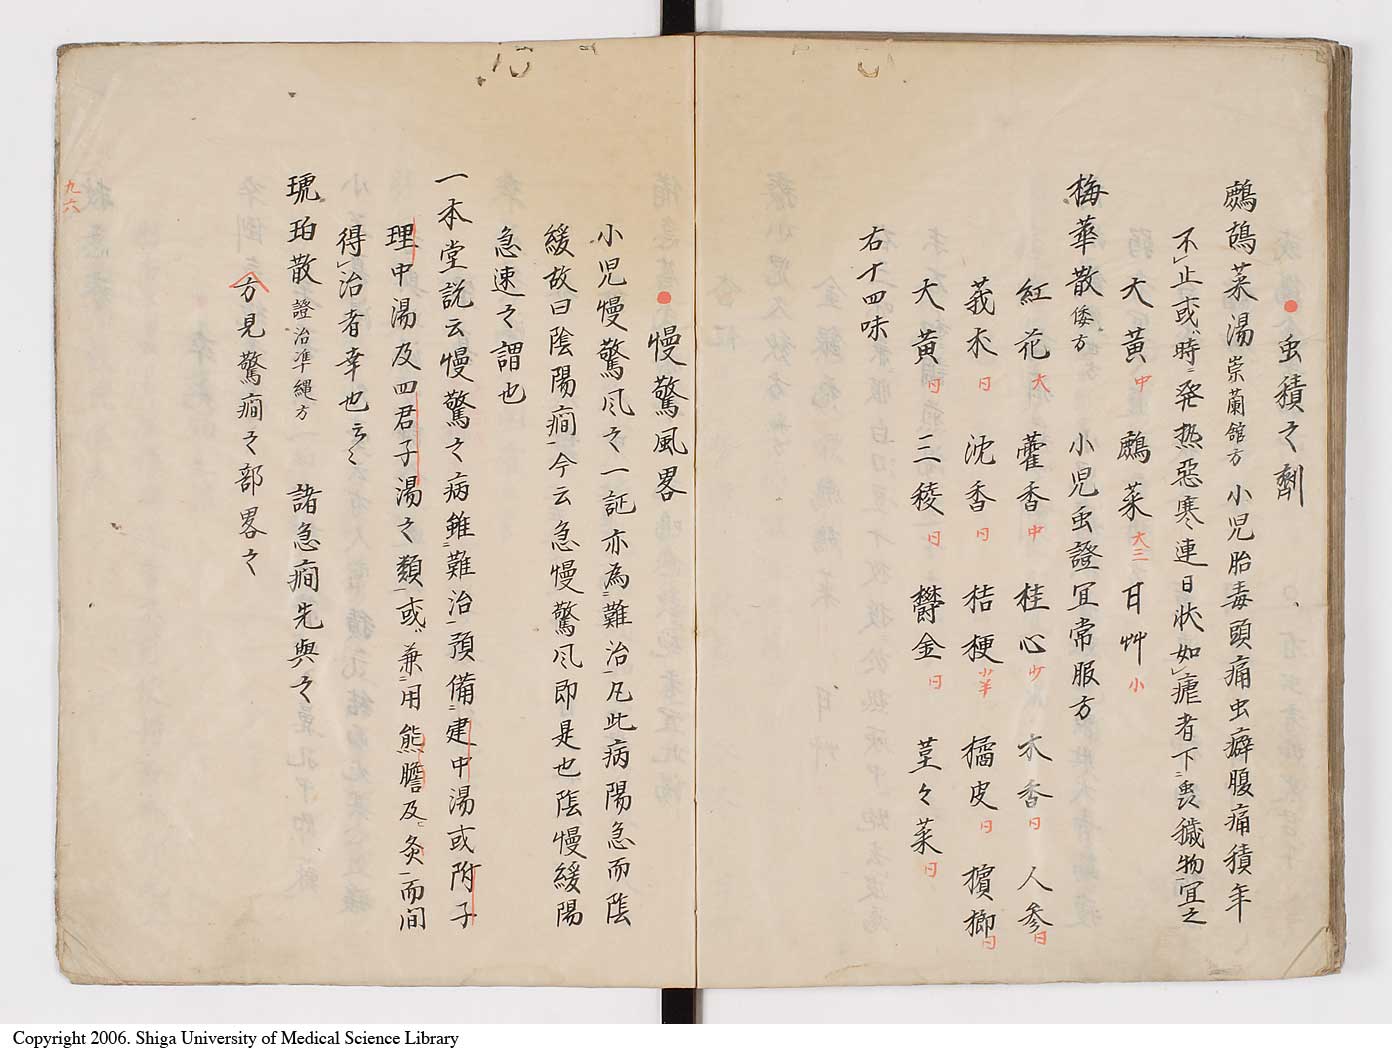 虫積之劑
鷓鴣菜湯 崇蘭館方 小児胎毒頭痛虫癖腹痛積年
不止或時発热惡寒連日状如瘧者下畏穢物宜之
大黄中 鷓菜大三 甘艸小
梅華散 倭方 小児虫證宜常服方
紅花大 藿香中 桂心少 木香日 人参日
莪朮日 沈香日 桔梗小半 橘皮日 檳榔日
大黄日 三稜日 欝金日 茎々菜日
右十四味
慢驚風畧
小児慢驚风之一証亦為難治凡此病陽急而陰
緩故曰陰陽癇今云急慢驚风即是也陰慢緩陽
急速之謂也
一本堂説云慢驚之病雖難治預備建中湯或附子
理中湯及四君子湯之類或兼用熊膽及灸而间
得治者幸也云々
琥珀散 證治准繩方 諸急癇先與之
方見驚癇之部畧之
九六
Copyright 2006. Shiga University of Medical Science Library